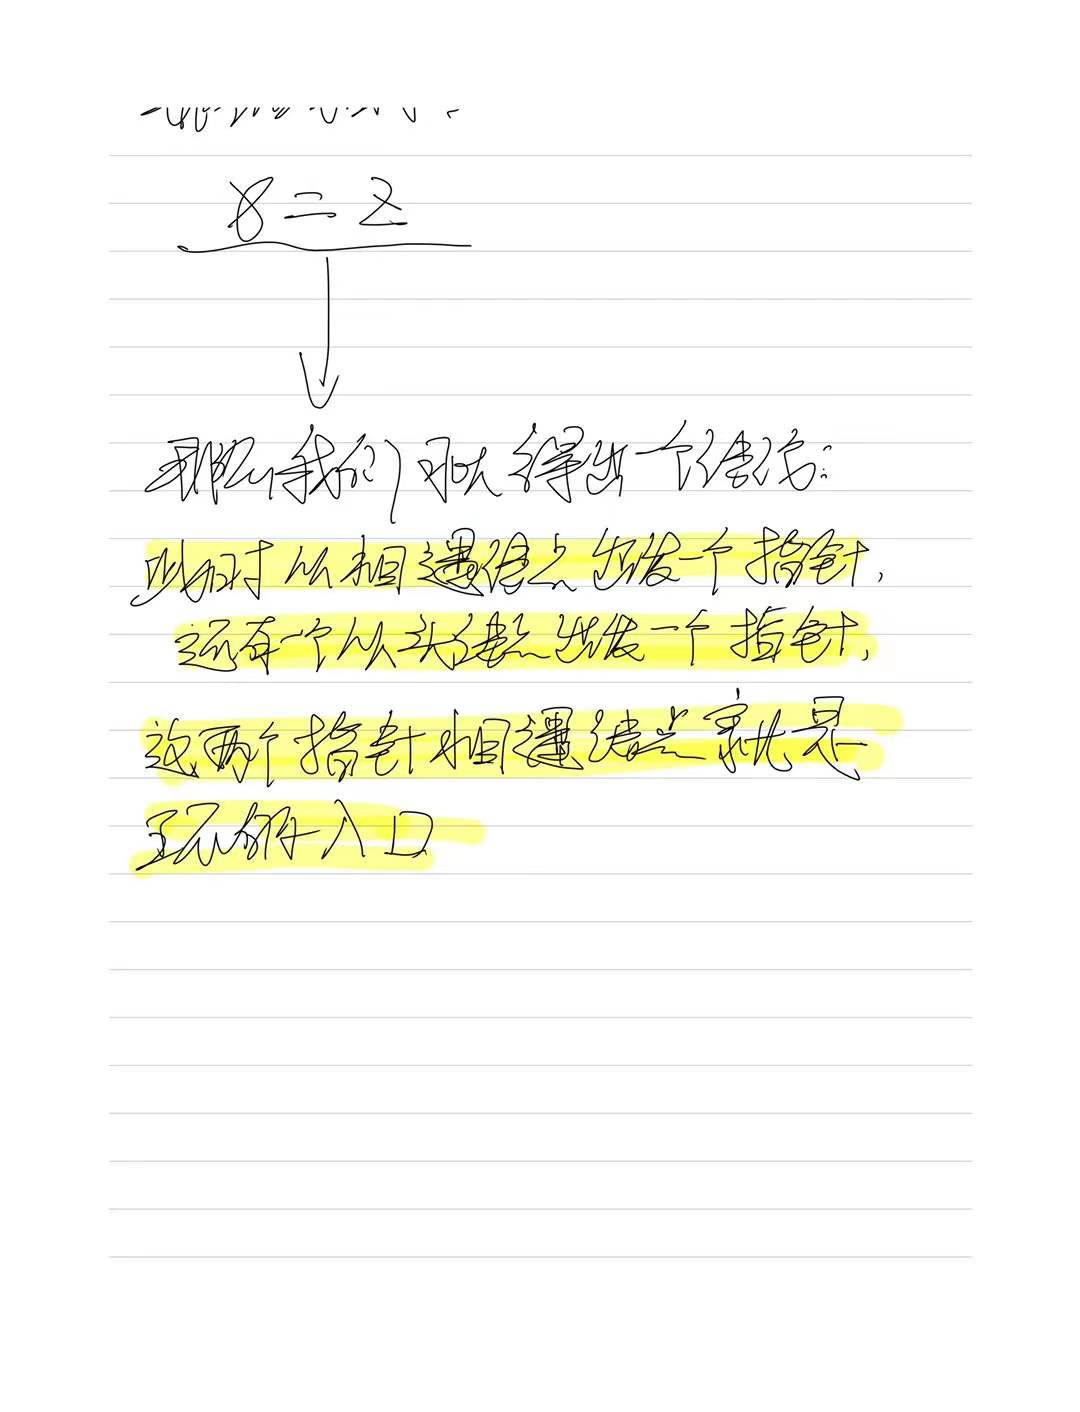 x = z
那么我们可以得出一个结论:
此时从相遇结点出发一个指针,
还有一个从头结点出发一个指针,
这两个指针相遇结点就是
环的入口